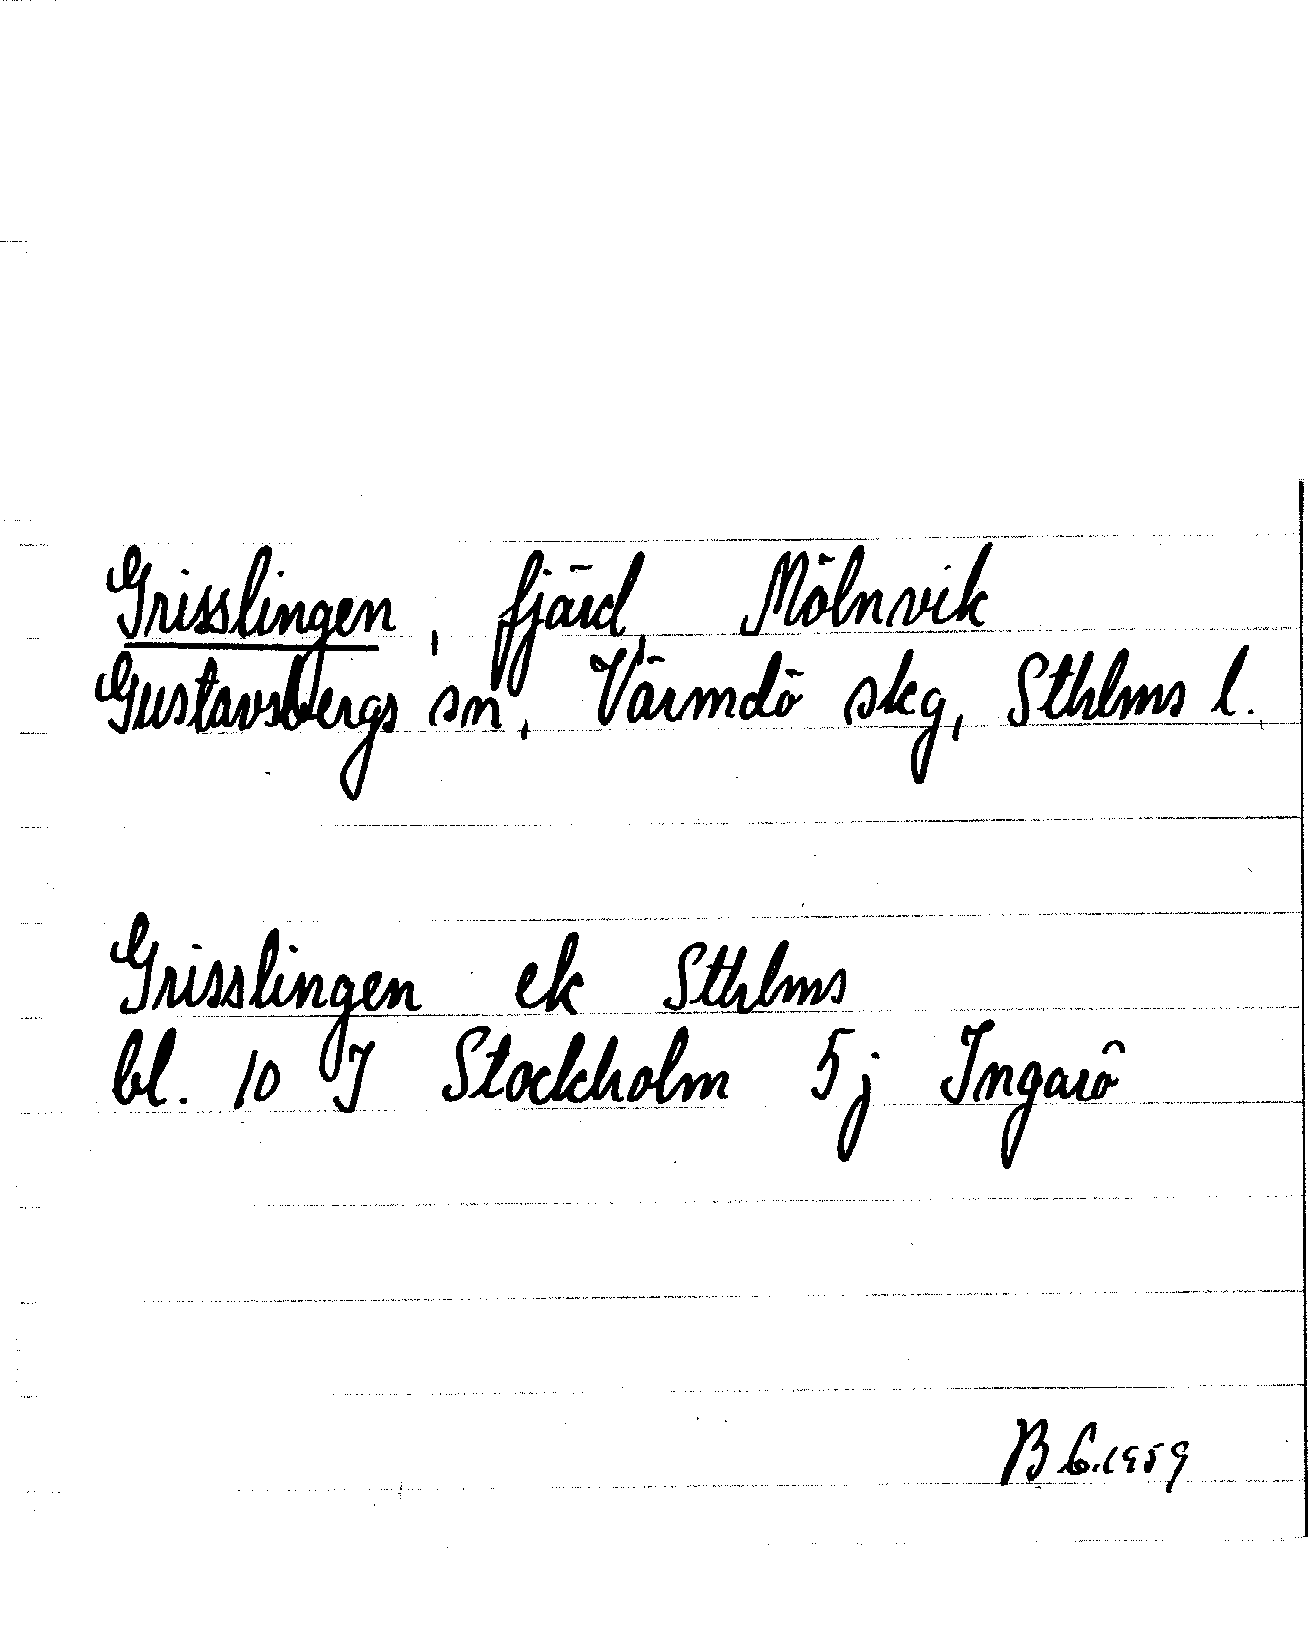 Grisslingen, fjärd, Mölnvik
Gustavsbergs sn, Värmdö skg, Sthlms l.
Grisslingen ek Sthlms
bl. 10 I Stockholm 5j Ingarö
B 6.1959